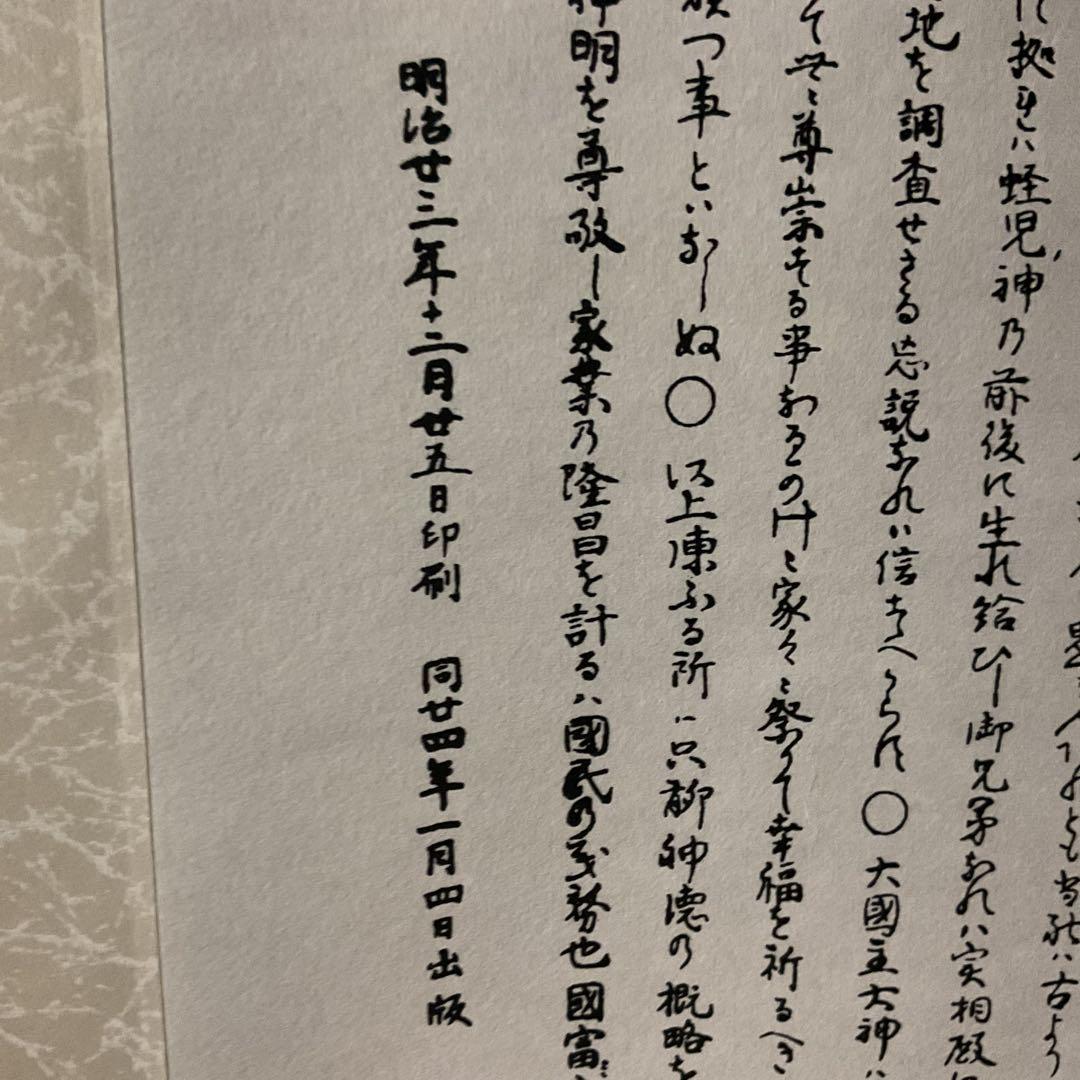 是 人 のとも当社ハ古より
に拠れハ蛭児神乃前後に生れ給ひし御兄弟なれハ実相殿に
地を調査せさる忘説なれハ信すへからす〇大國主大神ハ
て世ゝ尊崇する事なるのけミ家々ゝ祭りて幸福を祈るへき
つ事といなしぬ〇以上陳ふる所ハ只聊神德の概略を
神明を尊敬し家業乃隆昌を計るハ國民の義務也國富
明治廿三年十二月廿五日印刷 同廿四年一月四日出版